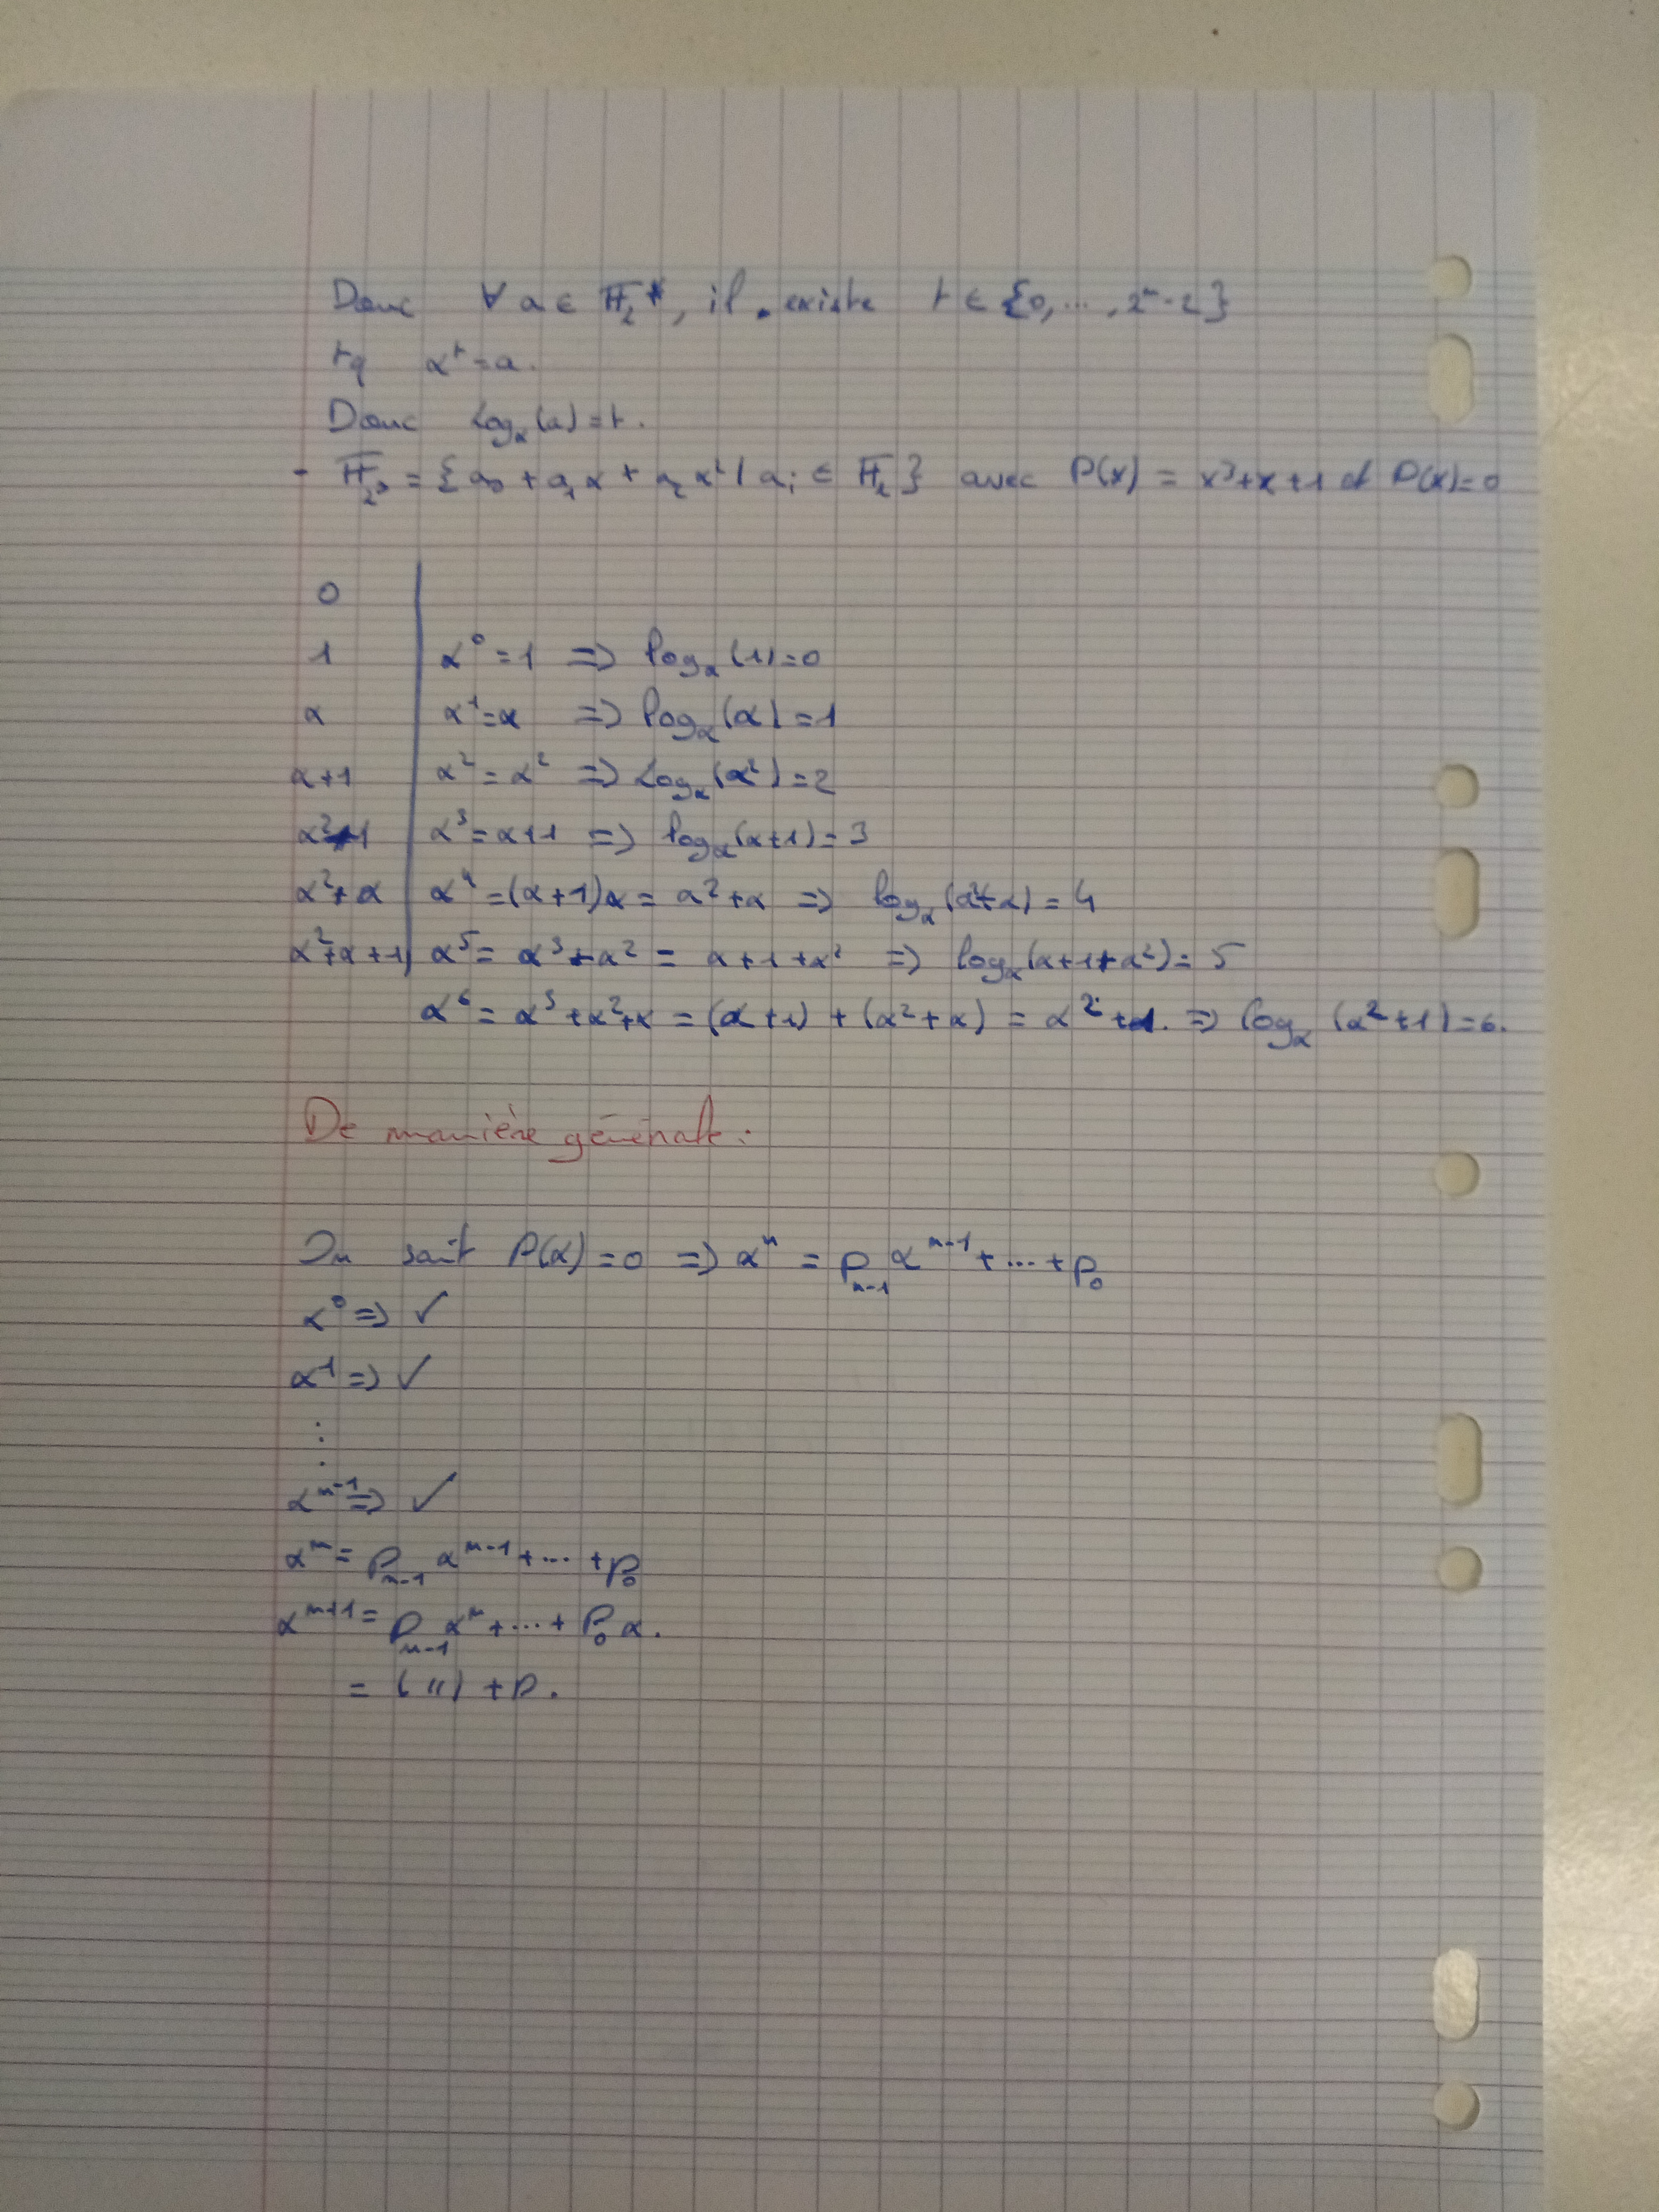 Donc ∀ a ∈ 𝔽₂*, il existe t ∈ {0, ..., 2ⁿ-2}
tq αᵗ = a.
Donc Log_α(a) = t.
- 𝔽_2³ = {a₀ + a₁α + a₂α² | aᵢ ∈ 𝔽₂} avec P(x) = x³+x+1 et P(α)=0
0
1 | α⁰ = 1 => log_α(1) = 0
α | α¹ = α => log_α(α) = 1
α+1 | α² = α² => Log_α(α²) = 2
α² | α³ = α+1 => log_α(α+1) = 3
α²+α | α⁴ = (α+1)α = α²+α => log_α(α²+α) = 4
α²+α+1 | α⁵ = α³+α² = α+1+α² => log_α(α+1+α²) = 5
α⁶ = α³+α²+α = (α+1) + (α²+α) = α²+1. => log_α(α²+1) = 6.
De manière générale :
On sait P(α) = 0 => αⁿ = p_{n-1} α^{n-1} + ... + p₀
α⁰ => ✓
α¹ => ✓
⋮
α^{n-1} => ✓
αⁿ = p_{n-1} α^{n-1} + ... + p₀
α^{n+1} = p_{n-1} αⁿ + ... + p₀ α.
= ( " ) + p.